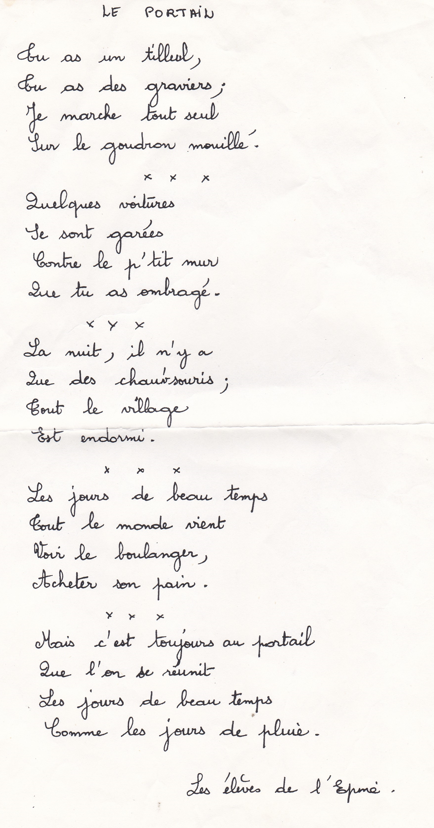 LE PORTAIL
Tu as un tilleul,
Tu as des graviers ;
Je marche tout seul
Sur le goudron mouillé.
x x x
Quelques voitures
Se sont garées
Contre le p'tit mur
Que tu as ombragé.
x x x
La nuit, il n'y a
Que des chauv'souris ;
Tout le village
Est endormi.
x x x
Les jours de beau temps
Tout le monde vient
Voir le boulanger,
Acheter son pain.
x x x
Mais c'est toujours au portail
Que l'on se réunit
Les jours de beau temps
Comme les jours de pluie.
Les élèves de l'Epine.